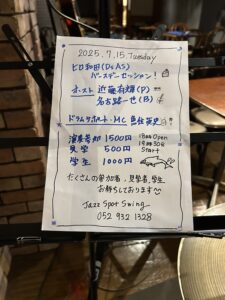 2025.7.15.Tuesday
ヒロ和田(Ds,AS)
バースデーセッション!
ホスト 近藤有輝(P)
名古路一也(B)
ドラムサポート・MC
演奏参加 1500円
見学 500円
学生 1000円
18時Open
18時30分
Start
たくさんの参加者、見学者、学生
お待ちしております
Jazz Spot Swing
052 932 1328